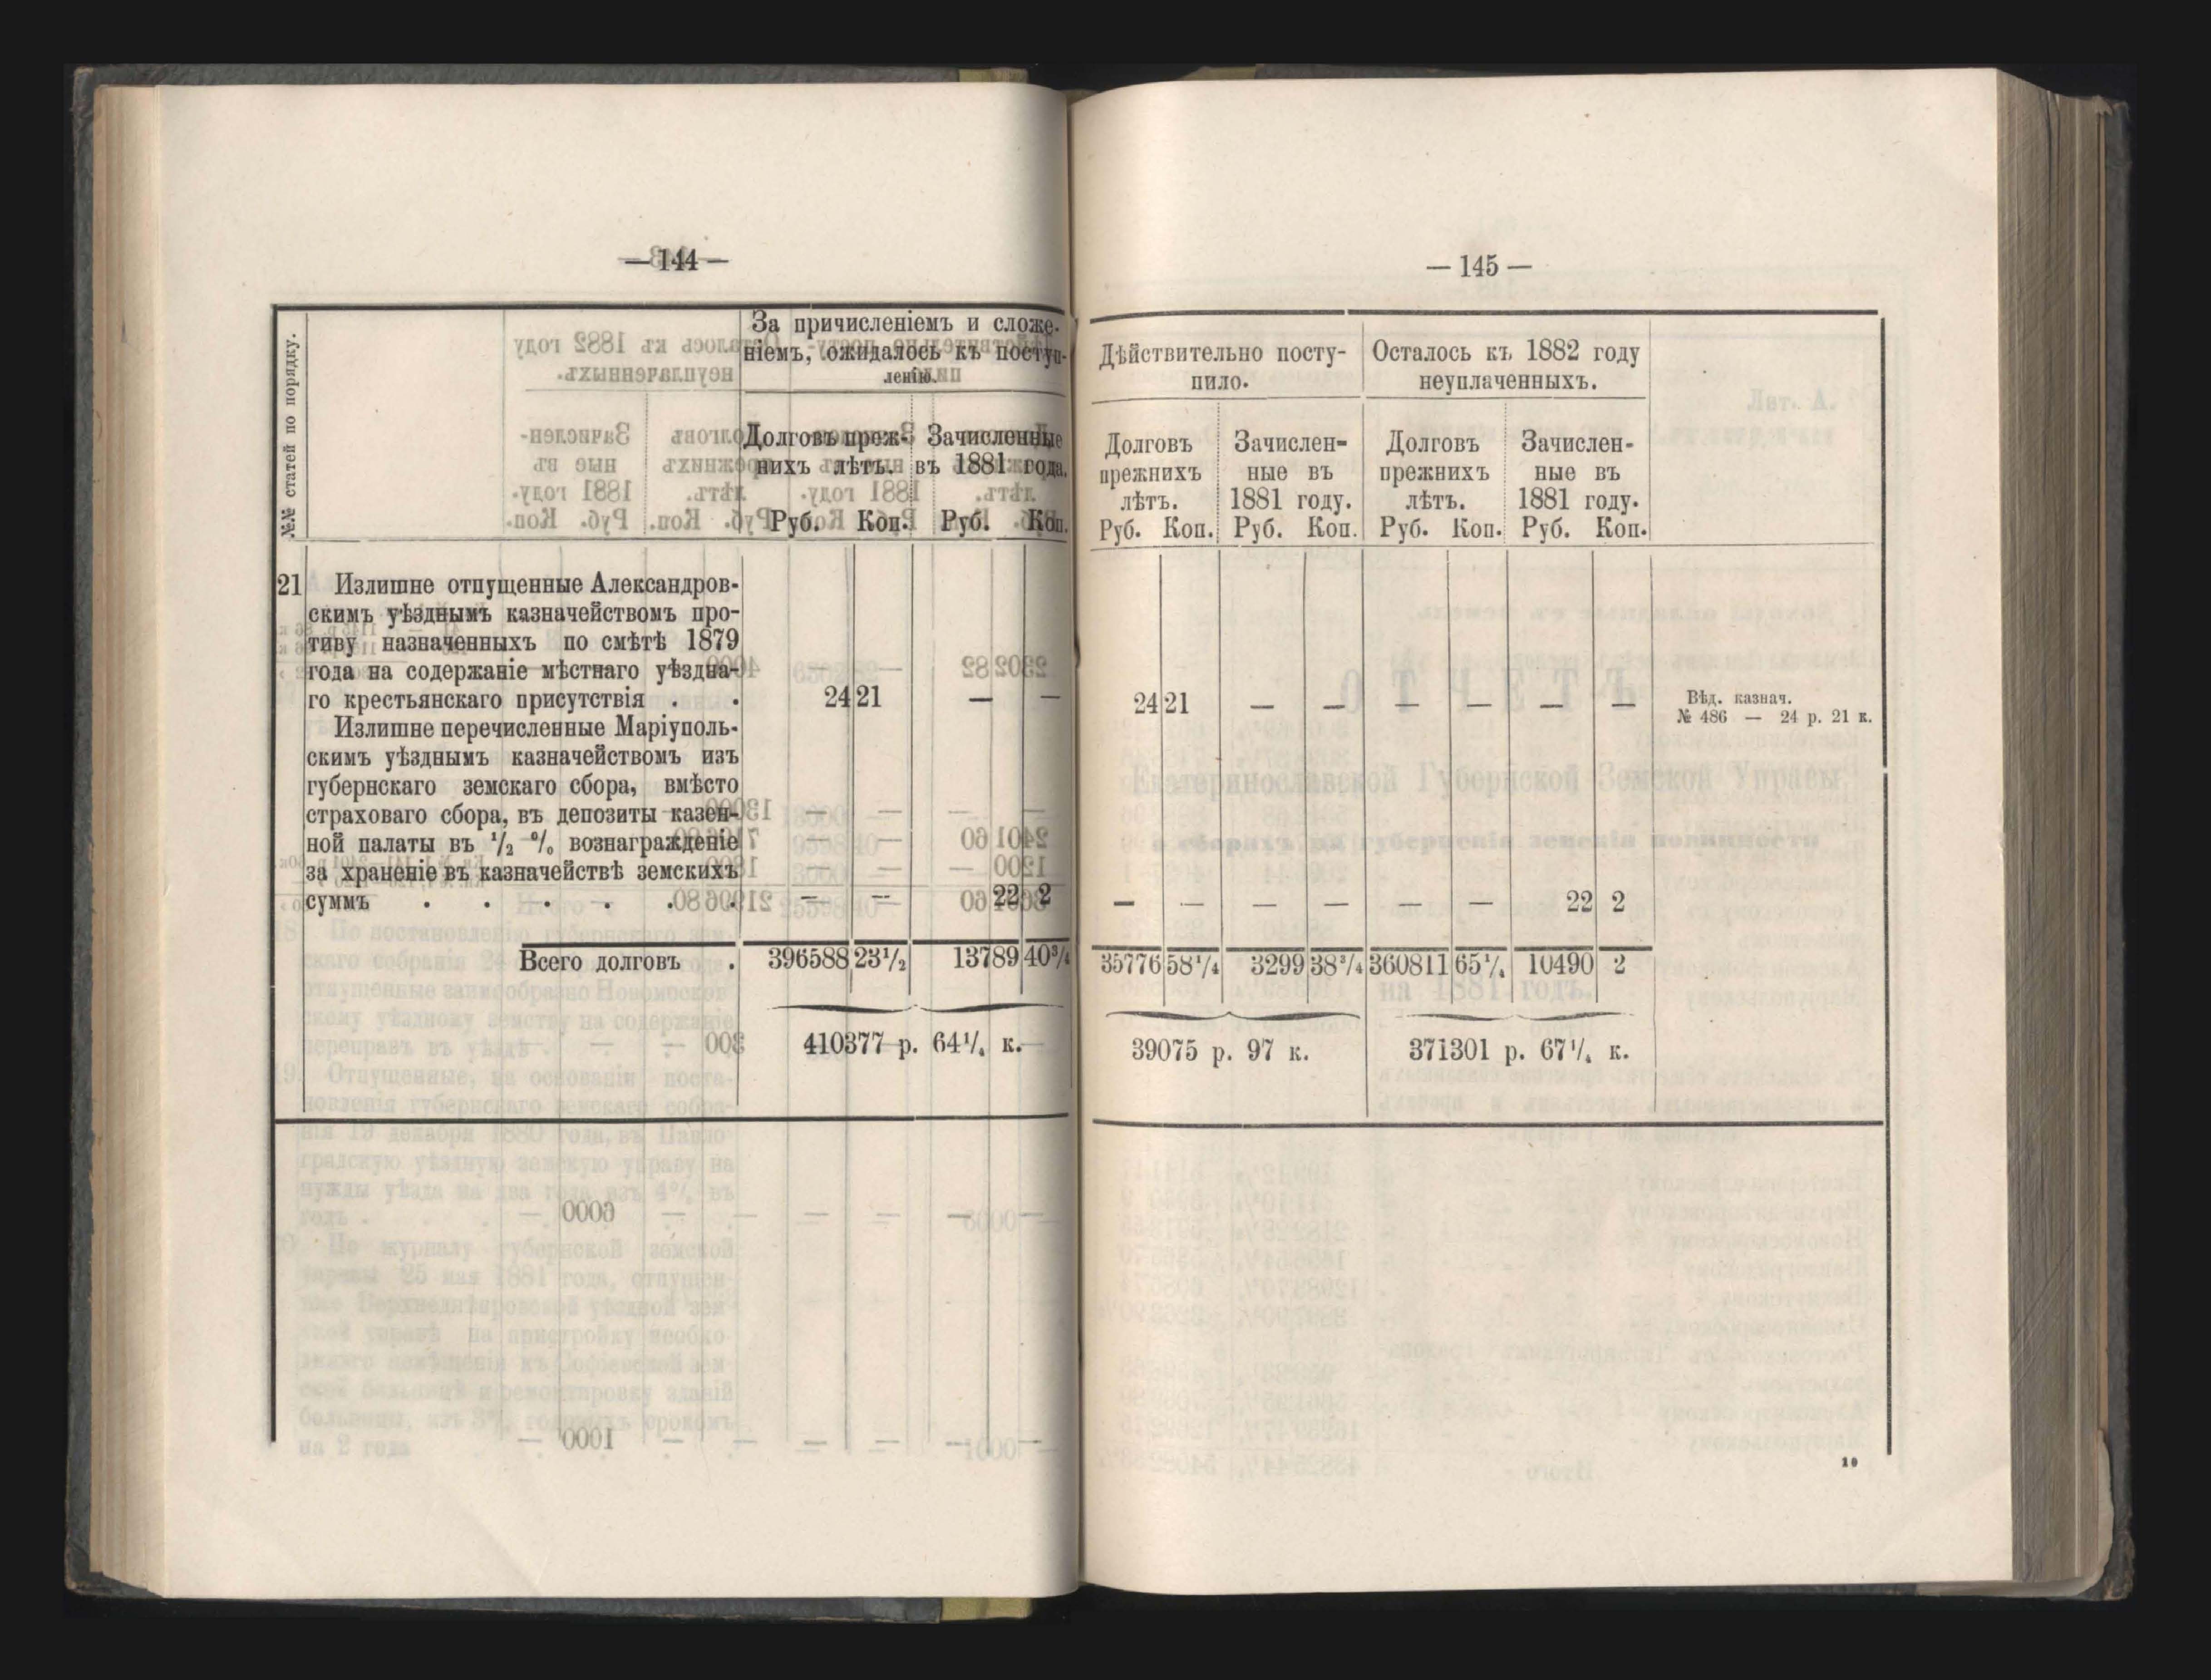 — 144 —
№№ статей по порядку.
За причисленіемъ и сложе-
ніемъ, ожидалось къ поступ-
ленію.
Долговъ преж-
нихъ лѣтъ.
Зачисленные
въ 1881 года.
Руб. Коп. Руб. Коп.
21 Излишне отпущенные Александров-
скимъ уѣзднымъ казначействомъ про-
тиву назначенныхъ по смѣтѣ 1879
года на содержаніе мѣстнаго уѣздна-
го крестьянскаго присутствія . . 24 21 — —
Излишне перечисленные Маріуполь-
скимъ уѣзднымъ казначействомъ изъ
губернскаго земскаго сбора, вмѣсто
страховаго сбора, въ депозиты казен-
ной палаты въ ½ % вознагражденіе
за храненіе въ казначействѣ земскихъ
суммъ . . . . . . — — 22 2
Всего долговъ . 396588 23½ 13789 40¾
410377 р. 64¼ к.
— 145 —
Дѣйствительно посту-
пило.
Осталось къ 1882 году
неуплаченныхъ.
Долговъ
прежнихъ
лѣтъ.
Зачислен-
ные въ
1881 году.
Долговъ
прежнихъ
лѣтъ.
Зачислен-
ные въ
1881 году.
Руб. Коп. Руб. Коп. Руб. Коп. Руб. Коп.
24 21 — — — — — —
Вѣд. казнач.
№ 486 — 24 р. 21 к.
— — — — — — 22 2
35776 58¼ 3299 38¾ 360811 65¼ 10490 2
39075 р. 97 к. 371301 р. 67¼ к.
10